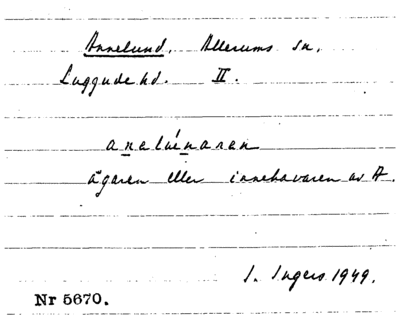 Annelund. Allerums sn.
Luggude hd. II.
analúnaran
ägaren eller innehavaren av A.
I. Ingers 1949.
Nr 5670.